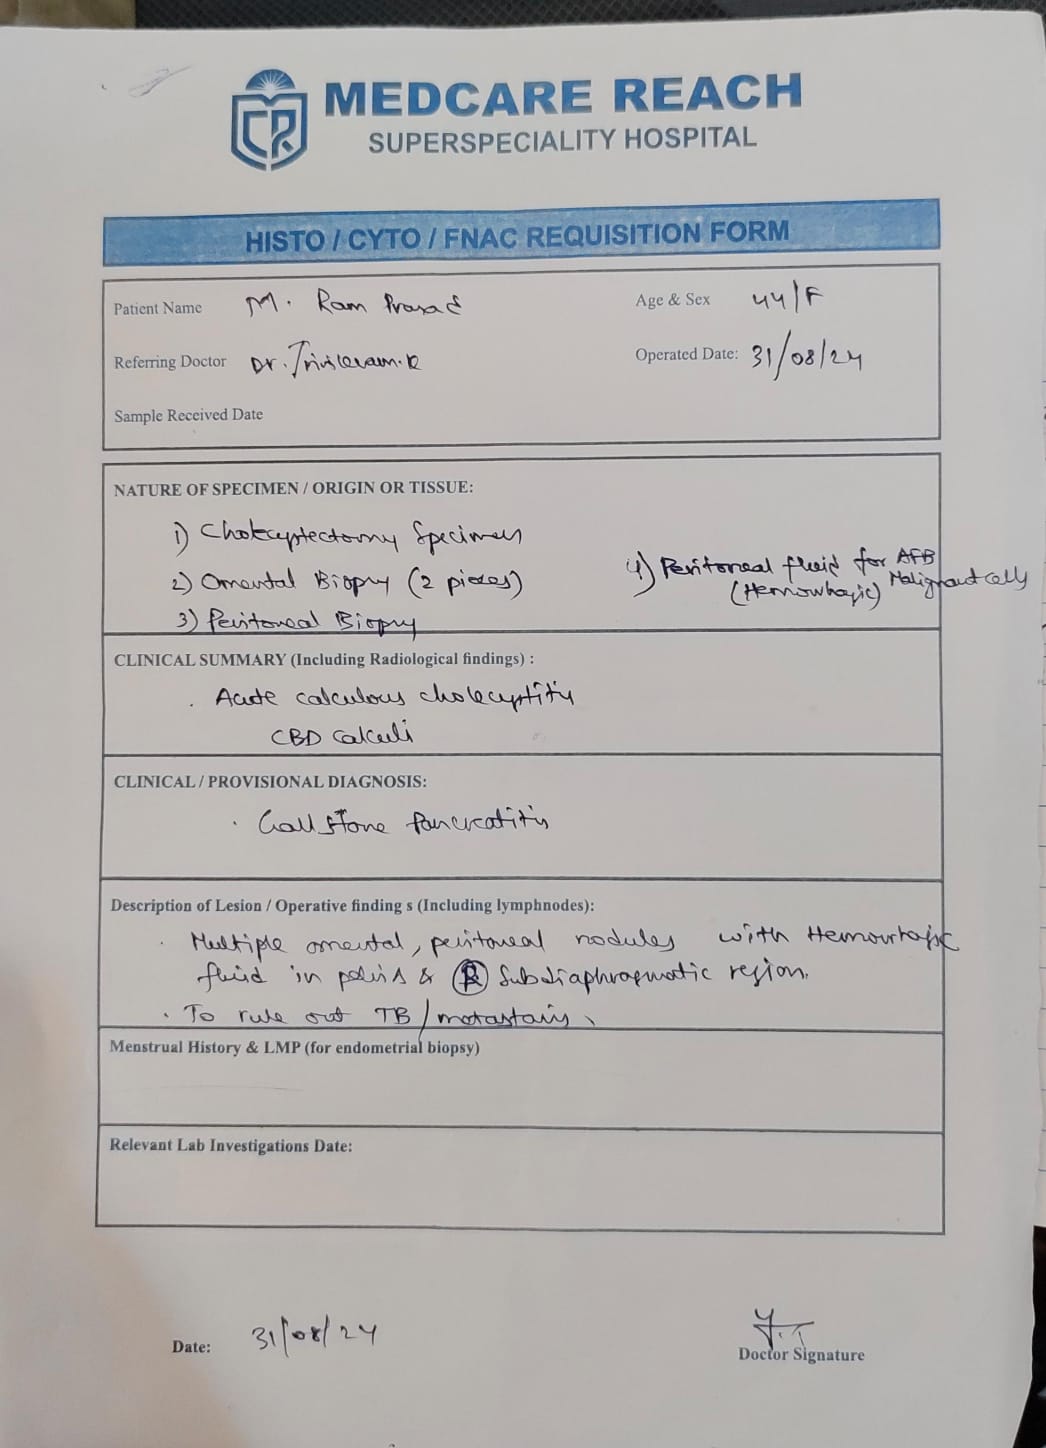 MEDCARE REACH
SUPERSPECIALITY HOSPITAL
HISTO / CYTO / FNAC REQUISITION FORM
Patient Name M. Ram Prasad
Age & Sex 44/F
Referring Doctor Dr.
Operated Date: 31/08/24
Sample Received Date
NATURE OF SPECIMEN / ORIGIN OR TISSUE:
1) Specimen
2) Omental Biopsy (2 pieces)
3) Peritoneal Biopsy
4) Peritoneal fluid for AFB
(Hemorrhagic) Malignant cells
CLINICAL SUMMARY (Including Radiological findings) :
. Acute calculous cholecystitis
CBD calculi
CLINICAL / PROVISIONAL DIAGNOSIS:
. Gall stone Pancreatitis
Description of Lesion / Operative finding s (Including lymphnodes):
. Multiple omental, peritoneal nodules with Hemorrhagic
fluid in pelvis & Ⓡ Subdiaphragmatic region.
. To rule out TB/metastasis.
Menstrual History & LMP (for endometrial biopsy)
Relevant Lab Investigations Date:
Date: 31/08/24
Doctor Signature